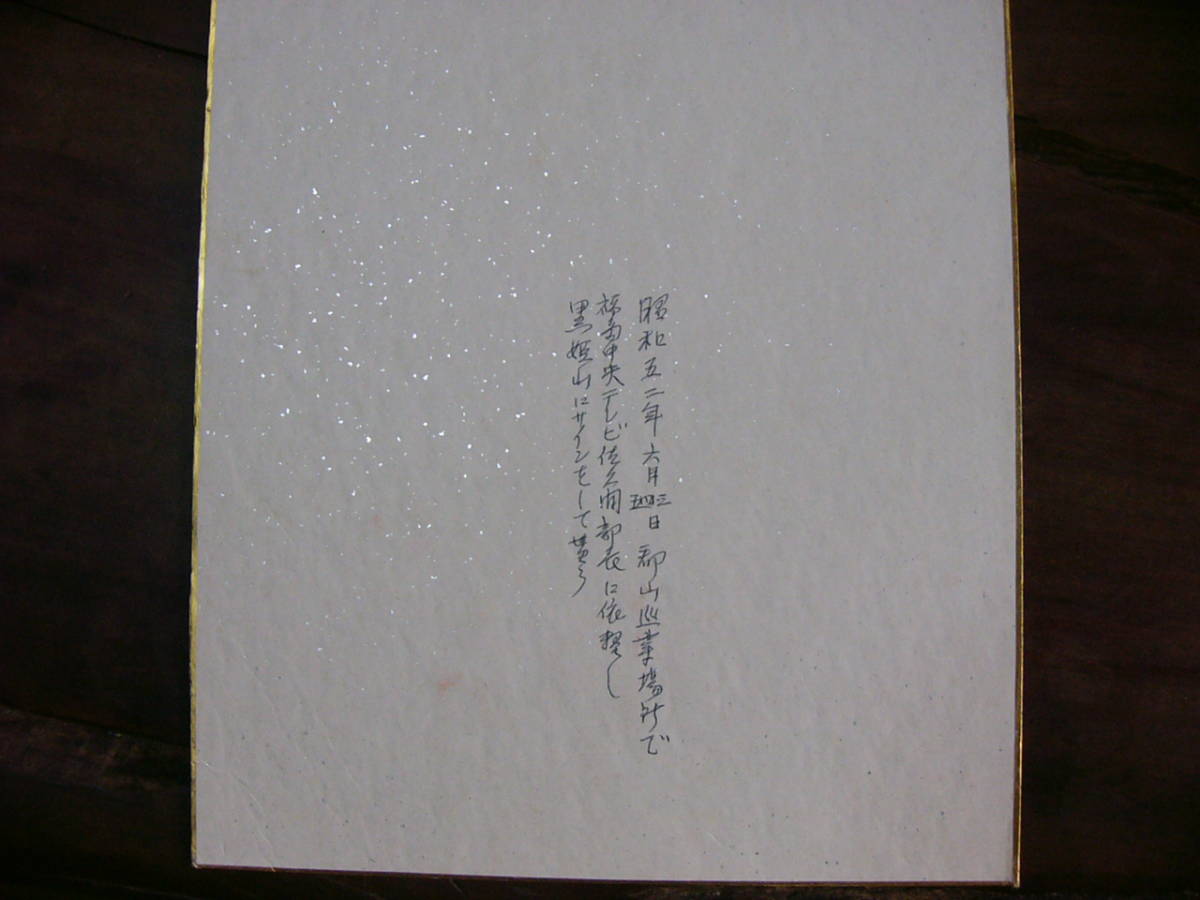 昭和五二年六月 日 郡山巡業場所で
福島中央テレビ佐久間部長に依頼し
黒姫山にサインをして貰う